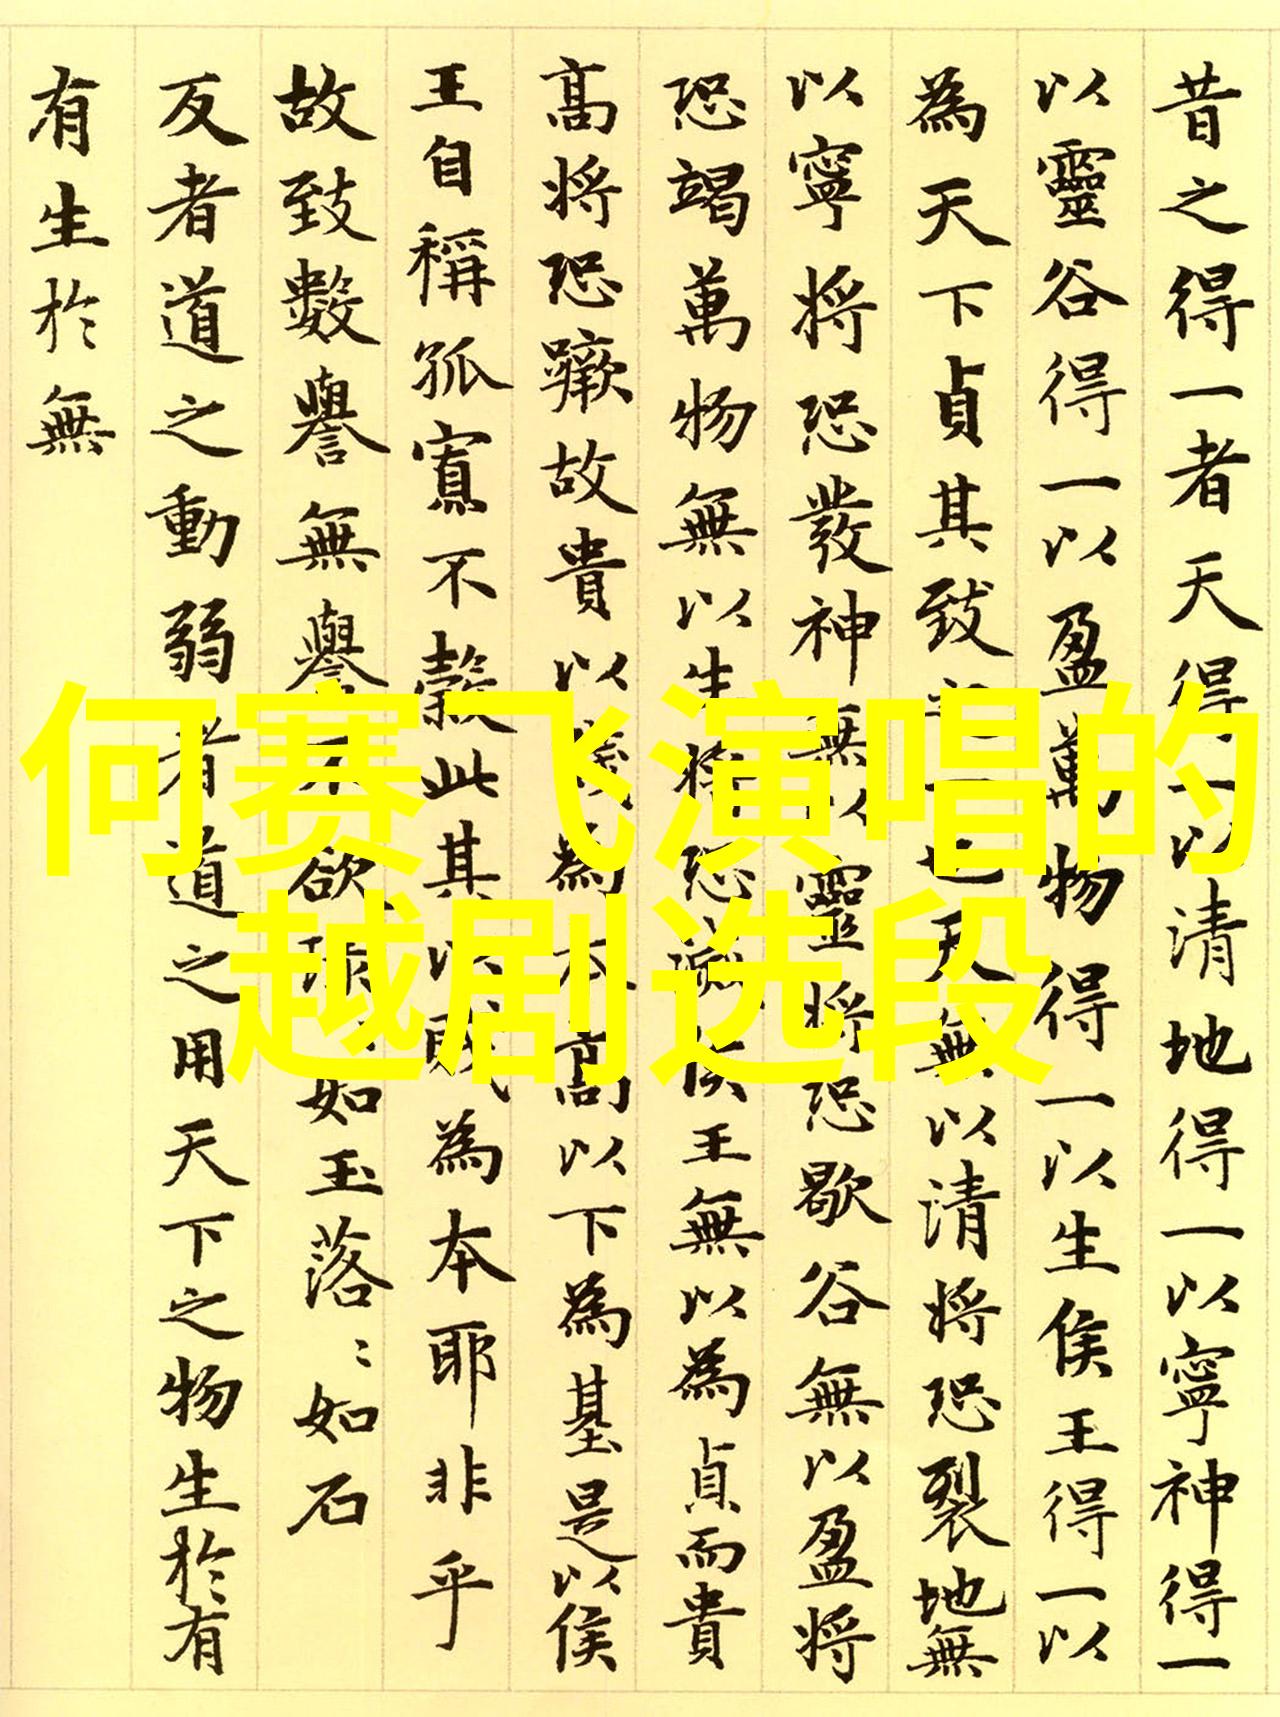 何赛飞演唱的
越剧选段
昔之得一者天得一以清地得一以寧神得一
以靈谷得一以盈萬物得一以生侯王得一以
為天下貞其致之一也天無以清將恐裂地無
以寧將恐發神無以靈將恐歇谷無以盈將
恐竭萬物無以生將恐滅侯王無以為貞而貴
高將恐蹶故貴以賤為本高以下為基是以侯
王自稱孤寡不穀此其以賤為本耶非乎
故致數譽無譽不欲琭〻如玉落〻如石
反者道之動弱者道之用天下之物生於有
有生於無